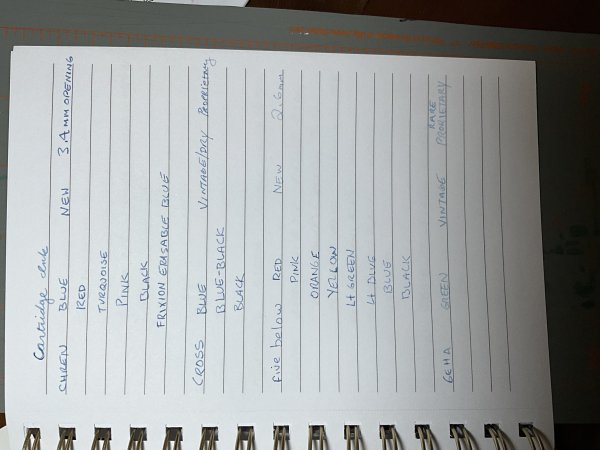 Cartridge ink
CHREN BLUE NEW 3.4MM OPENING
RED
TURQUOISE
PINK
BLACK
FRIXION ERASABLE BLUE
CROSS BLUE VINTAGE/DRY PROPRIETARY
BLUE-BLACK
BLACK
five below RED NEW 2.6mm
PINK
ORANGE
YELLOW
Lt GREEN
Lt BLUE
BLUE
BLACK
GEHA GREEN VINTAGE RARE PROPRIETARY